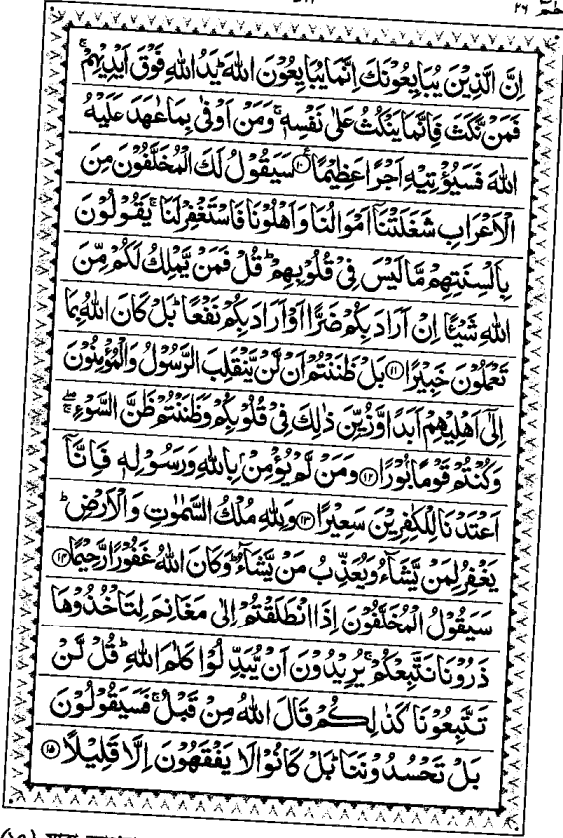 ٢٦
اِنَّ الَّذِيْنَ يُبَايِعُوْنَكَ اِنَّمَا يُبَايِعُوْنَ اللهَ ؕ يَدُ اللهِ فَوْقَ اَيْدِيْهِمْ ۚ
فَمَنْ نَّكَثَ فَاِنَّمَا يَنْكُثُ عَلٰى نَفْسِهٖ ۚ وَمَنْ اَوْفٰى بِمَا عٰهَدَ عَلَيْهُ
اللهَ فَسَيُؤْتِيْهِ اَجْرًا عَظِيْمًا ﴿١٠﴾ سَيَقُوْلُ لَكَ الْمُخَلَّفُوْنَ مِنَ
الْاَعْرَابِ شَغَلَتْنَاۤ اَمْوَالُنَا وَاَهْلُوْنَا فَاسْتَغْفِرْ لَنَا ۚ يَقُوْلُوْنَ
بِاَلْسِنَتِهِمْ مَّا لَيْسَ فِيْ قُلُوْبِهِمْ ؕ قُلْ فَمَنْ يَّمْلِكُ لَكُمْ مِّنَ
اللهِ شَيْـًٔا اِنْ اَرَادَ بِكُمْ ضَرًّا اَوْ اَرَادَ بِكُمْ نَفْعًا ؕ بَلْ كَانَ اللهُ بِمَا
تَعْمَلُوْنَ خَبِيْرًا ﴿١١﴾ بَلْ ظَنَنْتُمْ اَنْ لَّنْ يَّنْقَلِبَ الرَّسُوْلُ وَالْمُؤْمِنُوْنَ
اِلٰۤى اَهْلِيْهِمْ اَبَدًا وَّزُيِّنَ ذٰلِكَ فِيْ قُلُوْبِكُمْ وَظَنَنْتُمْ ظَنَّ السَّوْءِ ۖۚ
وَكُنْتُمْ قَوْمًۢا بُوْرًا ﴿١٢﴾ وَمَنْ لَّمْ يُؤْمِنْۢ بِاللهِ وَرَسُوْلِهٖ فَاِنَّاۤ
اَعْتَدْنَا لِلْكٰفِرِيْنَ سَعِيْرًا ﴿١٣﴾ وَلِلّٰهِ مُلْكُ السَّمٰوٰتِ وَالْاَرْضِ ؕ
يَغْفِرُ لِمَنْ يَّشَآءُ وَيُعَذِّبُ مَنْ يَّشَآءُ ؕ وَكَانَ اللهُ غَفُوْرًا رَّحِيْمًا ﴿١٤﴾
سَيَقُوْلُ الْمُخَلَّفُوْنَ اِذَا انْطَلَقْتُمْ اِلٰى مَغَانِمَ لِتَاْخُذُوْهَا
ذَرُوْنَا نَتَّبِعْكُمْ ۚ يُرِيْدُوْنَ اَنْ يُّبَدِّلُوْا كَلٰمَ اللهِ ؕ قُلْ لَّنْ
تَتَّبِعُوْنَا كَذٰلِكُمْ قَالَ اللهُ مِنْ قَبْلُ ۚ فَسَيَقُوْلُوْنَ
بَلْ تَحْسُدُوْنَنَا ؕ بَلْ كَانُوْا لَا يَفْقَهُوْنَ اِلَّا قَلِيْلًا ﴿١٥﴾